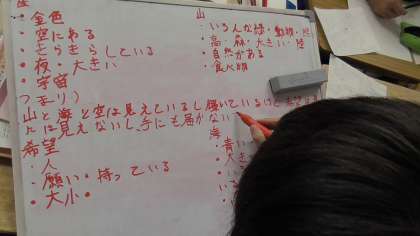 星
・金色
・空にある
・きらきらしている
・夜・大きい
・宇宙
山
・いろんな緑・動物・
・高・森・大きい・陸
・自然がある
・食べ物
つまり)
山と海と空は見えているし輝いているけど希望
は見えないし、手にも届かない
希望
・人
・願い・持っている
・大小・
海
・青い
・大き